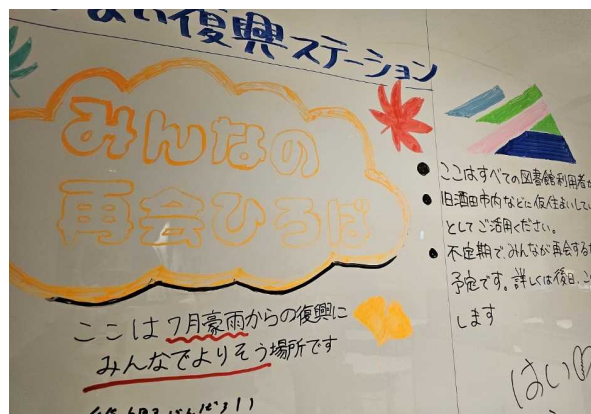 復興ステーション
みんなの
再会ひろば
ここは7月豪雨からの復興に
みんなでよりそう場所です
ここはすべての図書館利用者
旧酒田市内などに仮住まいしてい
としてご活用ください。
不定期で、みんなが再会する
予定です。詳しくは後日、こ
します
はい♡